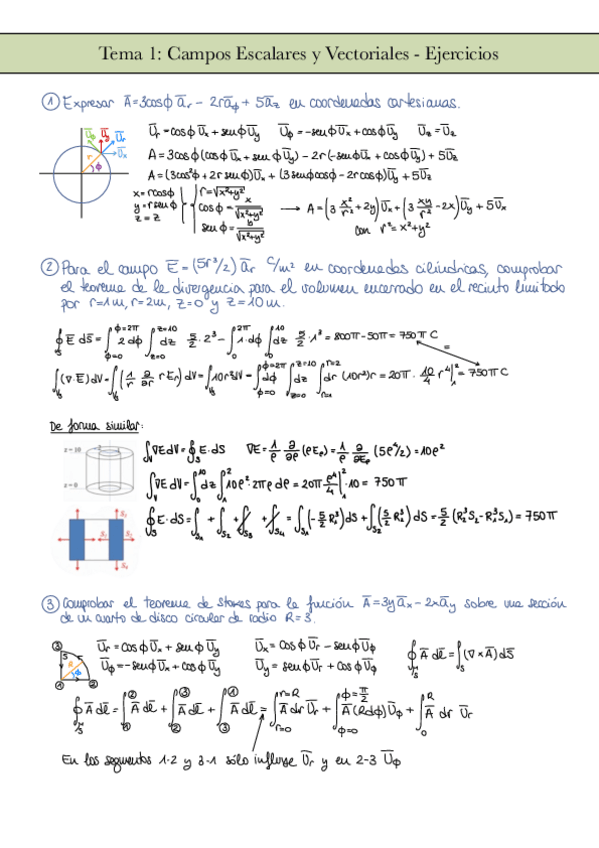 Tema 1: Campos Escalares y Vectoriales - Ejercicios
① Expresar A̅=3cosϕ a̅r - 2r a̅ϕ + 5a̅z en coordenadas cartesianas.
U̅ϕ U̅y U̅r U̅x r ϕ
U̅r = cosϕ U̅x + senϕ U̅y U̅ϕ = -senϕ U̅x + cosϕ U̅y U̅z = U̅z
A = 3cosϕ (cosϕ U̅x + senϕ U̅y) - 2r (-senϕ U̅x + cosϕ U̅y) + 5U̅z
A = (3cos²ϕ + 2r senϕ) U̅x + (3senϕcosϕ - 2rcosϕ) U̅y + 5U̅z
x = rcosϕ r = √x²+y²
y = r senϕ cosϕ = x/√x²+y² → A = (3 x²/r² + 2y) U̅x + (3 xy/r² - 2x) U̅y + 5U̅z
z = z senϕ = /√x²+y² con r² = x²+y²
② Para el campo E̅ = (5r³/2) a̅r C/m² en coordenadas cilíndricas, comprobar
el teorema de la divergencia para el volumen encerrado en el recinto limitado
por r=1m, r=2m, z=0 y z=10m.
∮s E̅ dS̅ = ∫ϕ=0^ϕ=2π 2dϕ ∫z=0^z=10 dz 5/2 · 2³ - ∫0^2π 1·dϕ ∫0^10 dz 5/2 · 1³ = 800π - 50π = 750π C
=
∫v (∇·E) dV = ∫v (1/r ∂/∂r r Er) dV = ∫v 10r² dV = ∫ϕ=0^ϕ=2π dϕ ∫z=0^z=10 dz ∫r=1^r=2 dr (10r²) r = 20π · 10/4 r⁴|1^2 = 750π C
De forma similar:
z = 10
z = 0
∫v ∇E dV = ∮s E·dS ∇E = 1/ρ ∂/∂ρ (ρEρ) = 1/ρ ∂/∂ρ (5ρ⁴/2) = 10ρ²
∫v ∇E dV = ∫0^10 dz ∫1^2 10ρ² · 2πρ dρ = 20π ρ⁴/4|1^2 · 10 = 750π
S₃ S₁ S₂ S₄
∮s E·dS = ∫s₁ + ∫s₂ + ∫s₃ + ∫s₄ = ∫s₁ (-5/2 R₁³) dS + ∫s₂ (5/2 R₂³) dS = 5/2 (R₂³S₂ - R₁³S₁) = 750π
③ Comprobar el teorema de Stokes para la función A̅=3y a̅x - 2x a̅y sobre una sección
de un cuarto de disco circular de radio R=3.
③ S R ϕ ① ②
U̅r = cosϕ U̅x + senϕ U̅y U̅x = cosϕ U̅r - senϕ U̅ϕ ∮ A̅ dl̅ = ∫s (∇×A̅) dS̅
U̅ϕ = -senϕ U̅x + cosϕ U̅y U̅y = senϕ U̅r + cosϕ U̅ϕ
∮ A̅ dl̅ = ∫①^② A̅ dl̅ + ∫②^③ A̅ dl̅ + ∫③^① A̅ dl̅ = ∫r=0^r=R A̅ dr U̅r + ∫ϕ=0^ϕ=π/2 A̅(Rdϕ) U̅ϕ + ∫0^R A̅ dr U̅r
En los segmentos 1-2 y 3-1 sólo influye U̅r y en 2-3 U̅ϕ